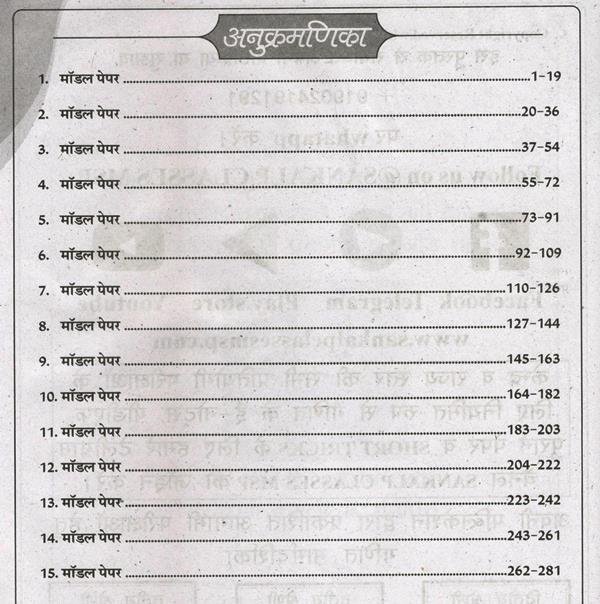 अनुक्रमणिका
1. मॉडल पेपर ........ 1-19
2. मॉडल पेपर ........ 20-36
3. मॉडल पेपर ........ 37-54
4. मॉडल पेपर ........ 55-72
5. मॉडल पेपर ........ 73-91
6. मॉडल पेपर ........ 92-109
7. मॉडल पेपर ........ 110-126
8. मॉडल पेपर ........ 127-144
9. मॉडल पेपर ........ 145-163
10. मॉडल पेपर ........ 164-182
11. मॉडल पेपर ........ 183-203
12. मॉडल पेपर ........ 204-222
13. मॉडल पेपर ........ 223-242
14. मॉडल पेपर ........ 243-261
15. मॉडल पेपर ........ 262-281